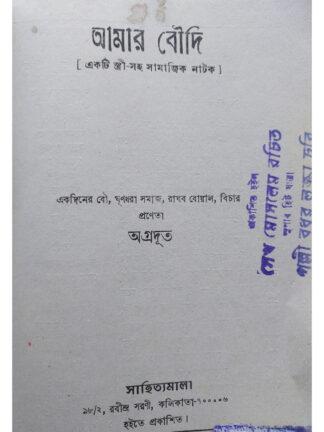 আমার বৌদি
[ একটি স্ত্রী-সহ সামাজিক নাটক ]
একদিনের বৌ, ঘুণধরা সমাজ, রাঘব বোয়াল, বিচার
প্রণেতা
অগ্রদূত
সাহিত্যমালা
৯৮/২, রবীন্দ্র সরণী, কলিকাতা-৭০০০০৬
হইতে প্রকাশিত।
প্রকাশিত হইল
রচিত